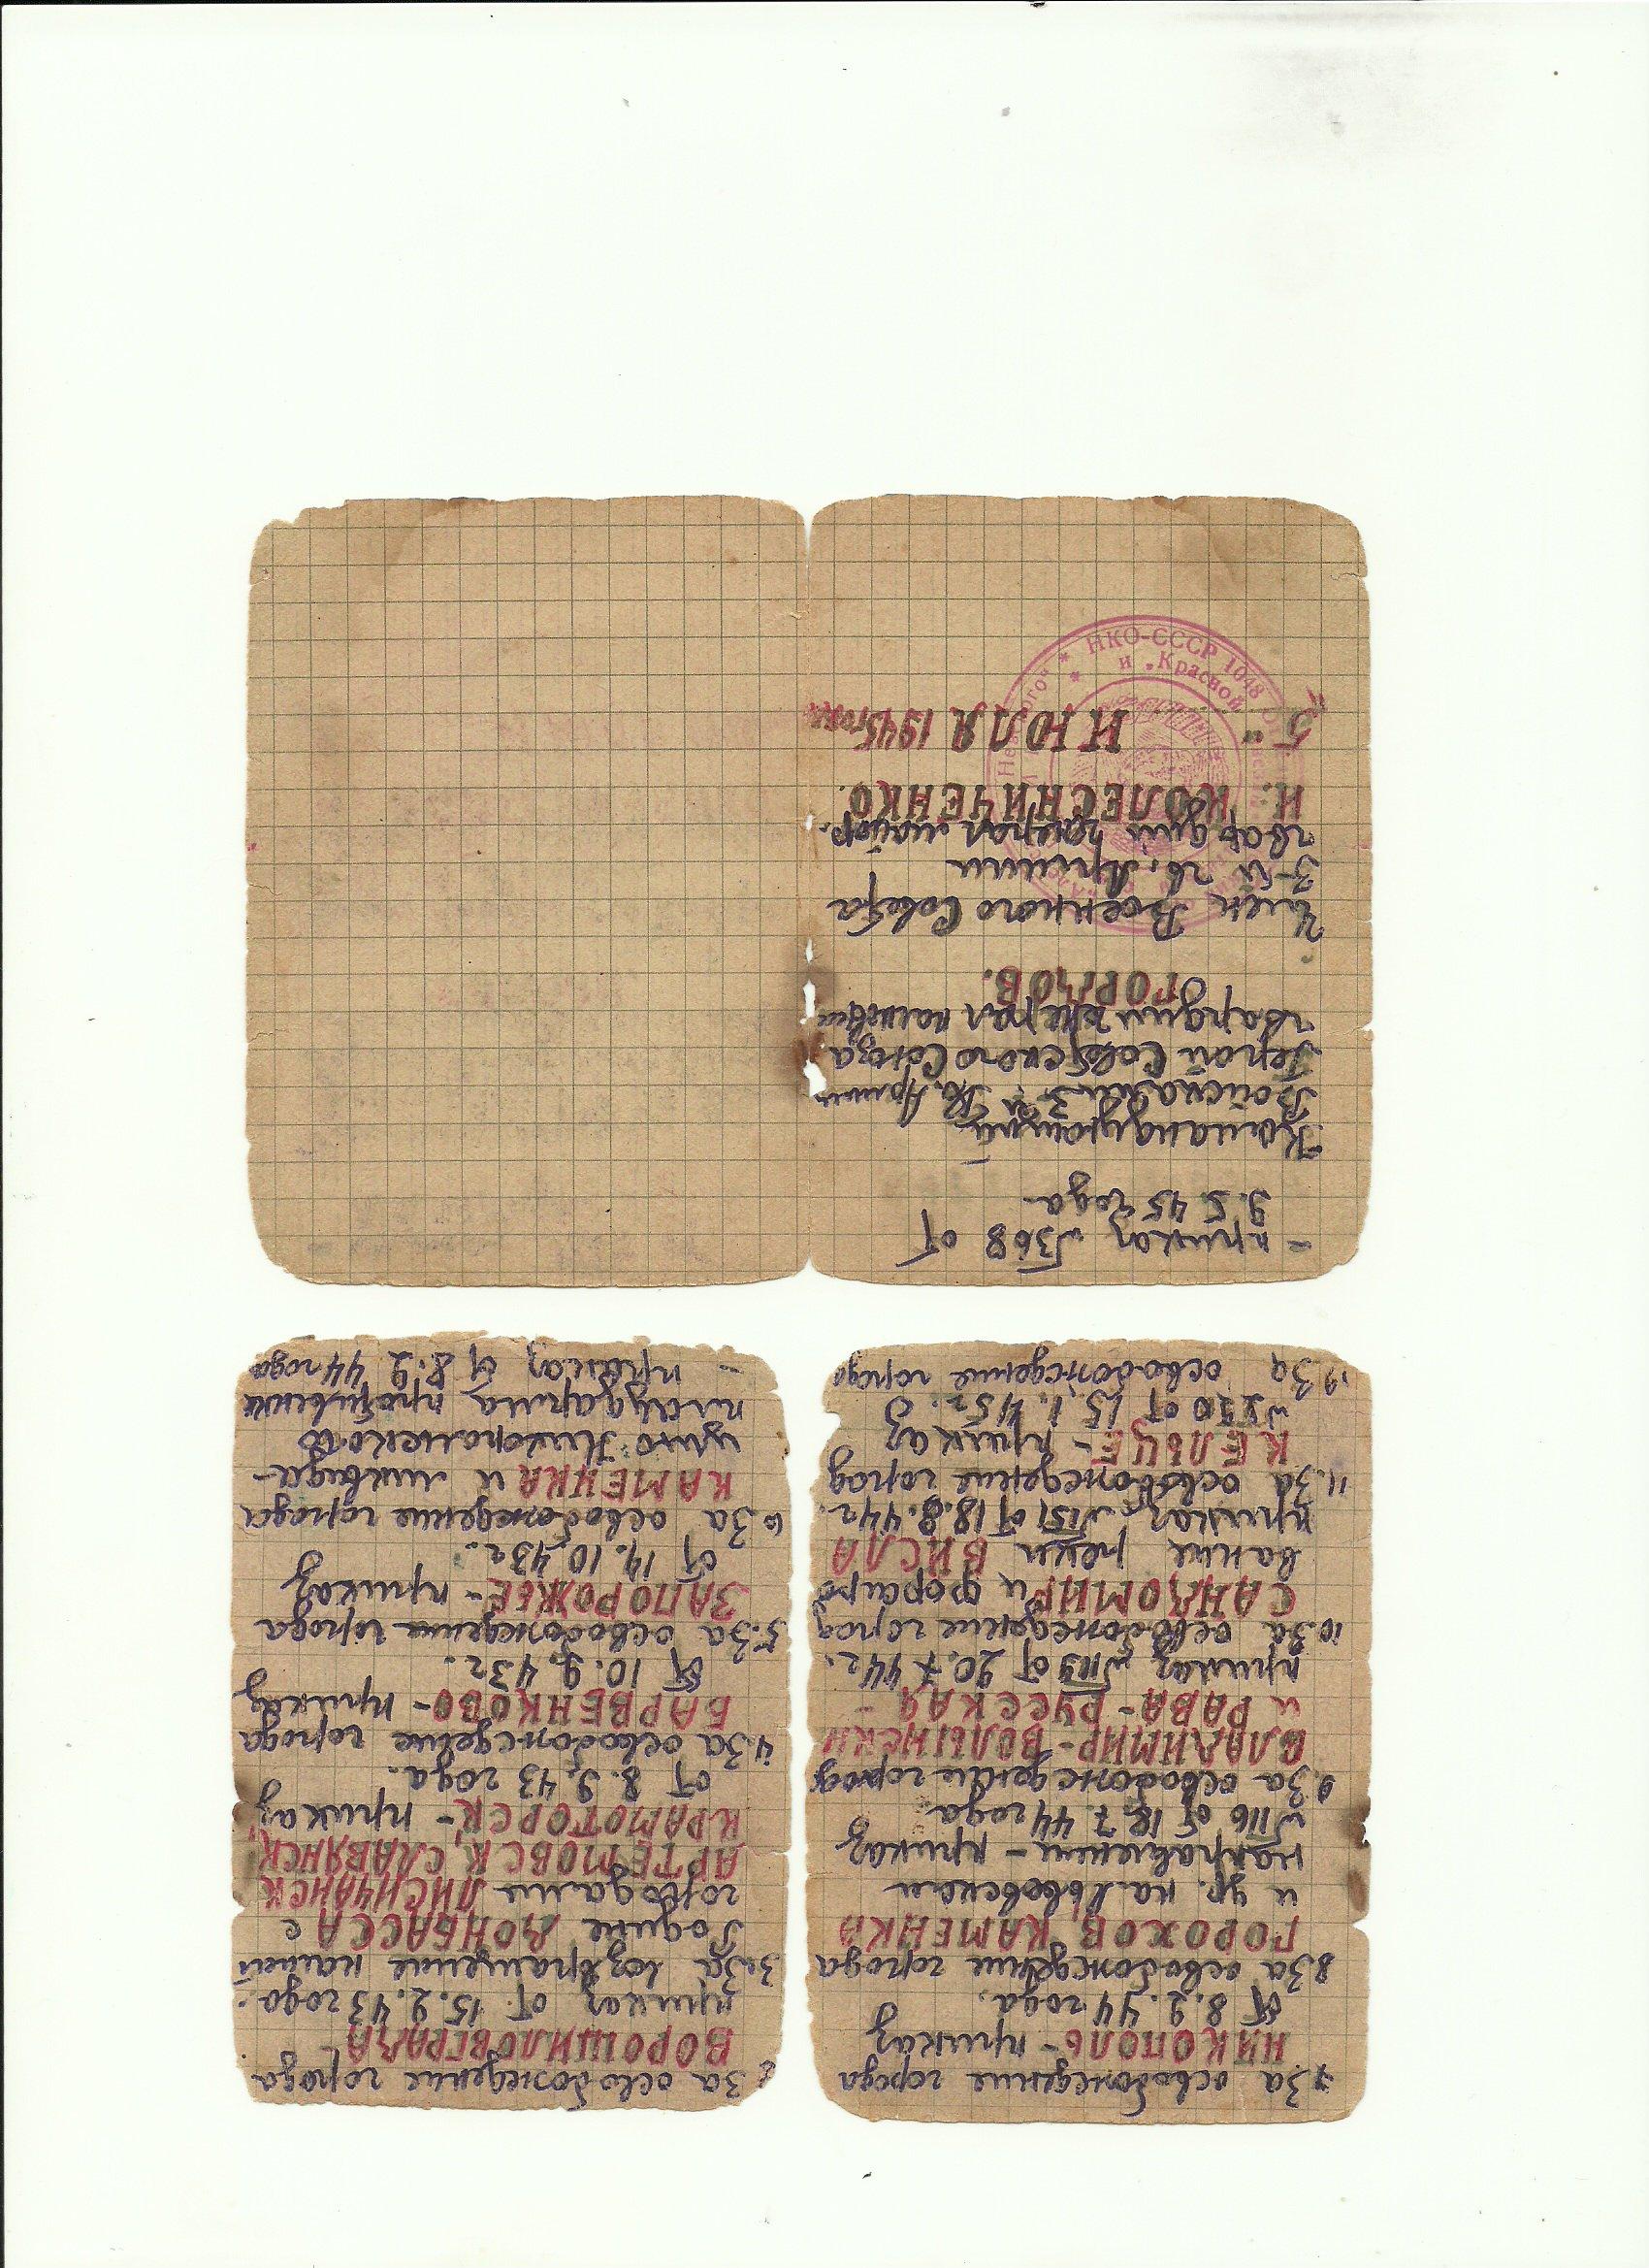 2 За освобождение города
ВОРОШИЛОВГРАДА
приказ от 15.2.43 года.
3. За возвращение нашей
Родине ДОНБАССА с
городами ЛИСИЧАНСК
АРТЕМОВСК, СЛАВЯНСК,
КРАМОТОРСК - приказ
от 8.9.43 года.
4. За освобождение города
БАРВЕНКОВО - приказ
от 10.9.43г.
5. За освобождение города
ЗАПОРОЖЬЕ - приказ
от 14.10.43г.
6 За освобождение города
КАМЕНКА и ликвида-
цию Никопольского
плацдарма противника
- приказ от 8.2 44 года
7. За освобождение города
НИКОПОЛЬ - приказ
от 8.2.44 года.
8 За освобождение города
ГОРОХОВ, КАМЕНКА
и др. на Львовском
направлении - приказ
№116 от 18.7.44 года.
9. За освобождение город
ВЛАДИМИР-ВОЛЫНСКИ
и РАВА-РУССКАЯ -
приказ от 20.7.44г.
10. За освобождение город
САНДОМИР и форсиро
вание реки ВИСЛА
приказ №151 от 18.8.44г.
11. За освобождение город
КЕЛЬЦЕ - приказ
№230 от 15.1.45г.
12 За освобождение города
- приказ №368 от
9.5.45 года
Командующий
Войсками 3 й Гв. Армии
Герой Советского Союза
гвардии генерал полковник
ГОРДОВ.
Член Военного Совета
3-й гв. Армии
гвардии генерал майор.
И. КОЛЕСНИЧЕНКО.
"5" ИЮЛЯ 1945 года
* НКО-СССР 1048
и „Красной